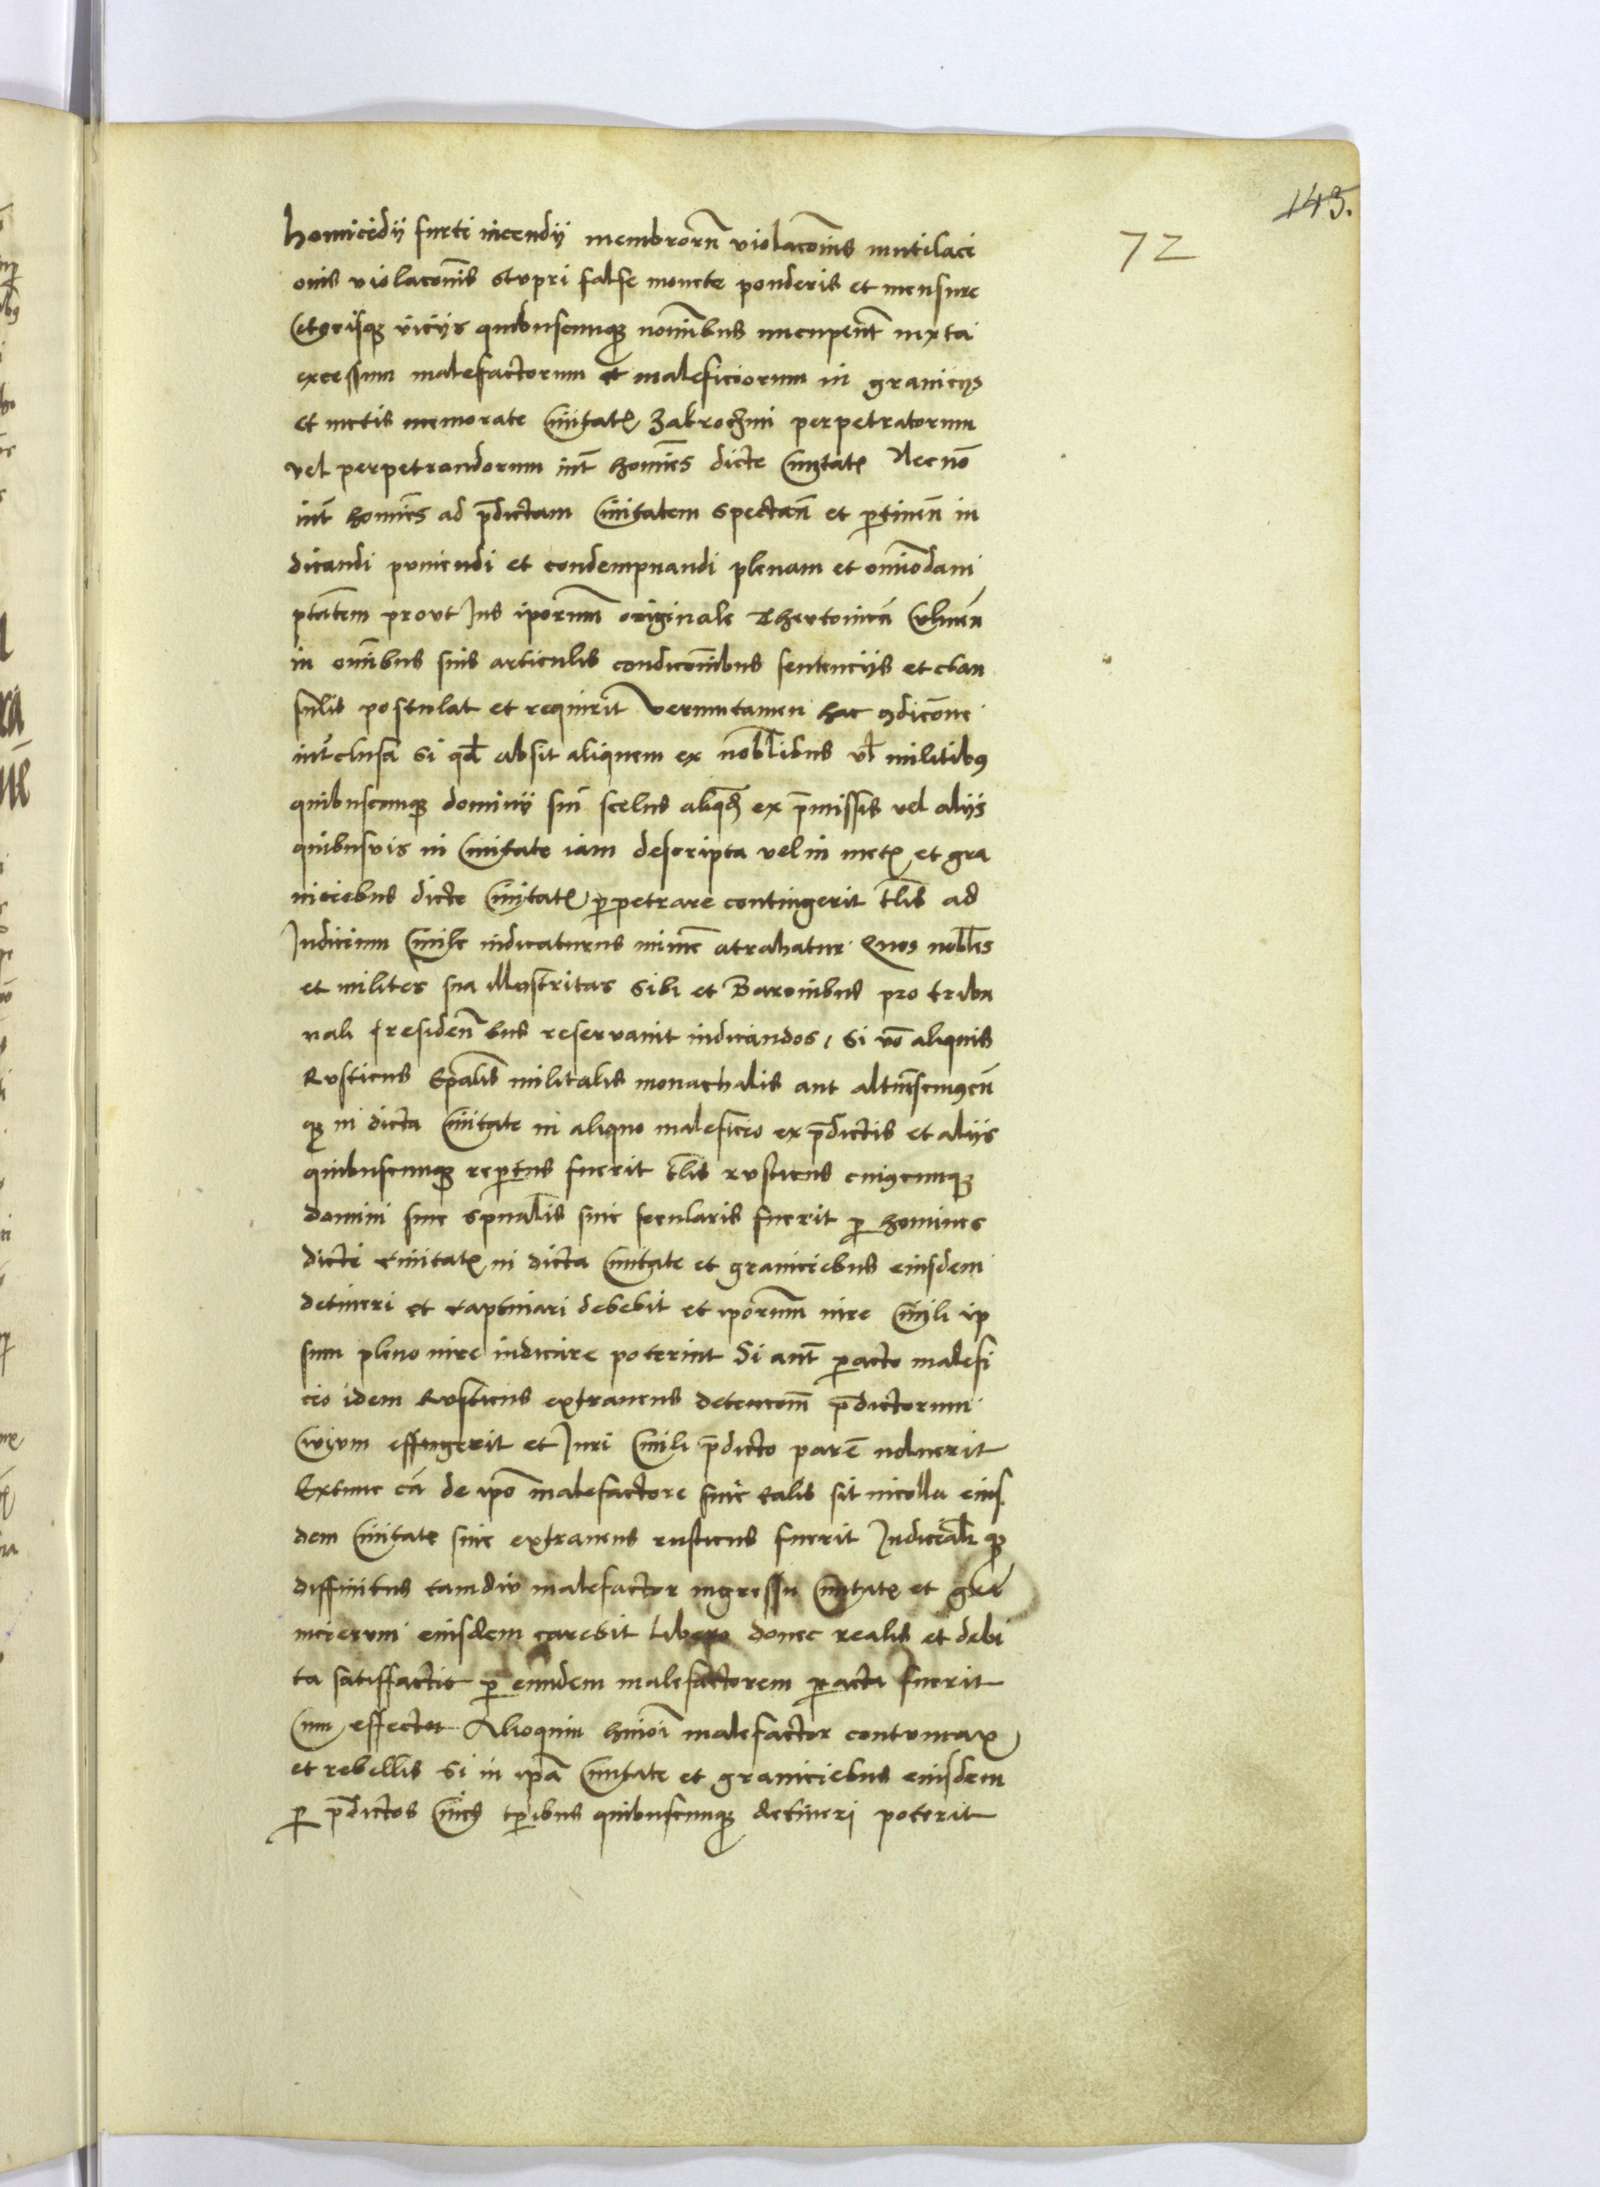 143.
72
homicidij furti incendij membrorū violacōnis mutilaci
onis violacōnis stvpri false monete ponderis et mensure
Ceterisq viciis quibuscumq nominibus nuncupent iuxta
excessum malefactorum et maleficiorum in granicijs
et metis memorate Civitatꝭ Zakroczimi perpetratorum
vel perpetrandorum int homīes dicte Civitatꝭ Necnō
int homīes ad p̄dictam Civitatem spectan̄ et ꝑtinen̄ iu
dicandi puniendi et condempnandi plenam et om̄iodam
ptātem provt Ius ip̄orum originale Thevtonicū Culmen̄
in om̄ibus suis articulis condicōnibus sentencijs et clau
sulis postulat et requirit Verumtamen hac ꝯdicōne
int̄clusa Si qd̄ absit aliquem ex nobilibus vl̄ militibꝰ
quibuscumq dominij sui scelus aliqd̄ ex p̄missis vel alijs
quibusvis in Civitate iam descripta vel in metꝭ et gra
niciebus dicte Civitatꝭ ꝑpetrare contingerit tlis ad
Iudicium Civile iudicaturus minīe atrahatur Quos nobl̄es
et milites sua illustritas sibi et Baronibus pro tribu
nali presiden̄bus reservavit iudicandos, Si vō aliquis
Rusticus Sp̄ualis militalis monachalis aut alt̄iuscuiꝰcū
q in dicta Civitate in aliquo maleficio ex p̄dictis et aliis
quibuscumq reꝑtus fuerit tlis rusticus cuiꝰcumq
domini sive spūalis sive secularis fuerit ꝑ homines
dicte Civitatꝭ in dicta Civitate et graniciebus eiusdem
detineri et captivari debebit et ip̄orum iure Civili ip
sum pleno iure iudicare poterint Si aut̄ ꝑacto malefi
cio idem Rusticus extraneus detencōm p̄dictorum
Civium effugerit et Iuri Civili p̄dicto parē noluerit
Extunc cā de ip̄o malefactore sive talis sit incolla eius
dem Civitatꝭ sive extraneus rusticus fuerit Iudicial̄r q
diffinitus tamdiv malefactor ingressu Civitatꝭ et gra
nicierum eiusdem carebit libero donec realis et debi
ta satisfactio ꝑ eundem malefactorem ꝑacta fuerit
Cum effectu Alioquin hmōi malefactor contumax
et rebellis Si in ip̄a Civitate et graniciebus eiusdem
ꝑ p̄dictos Cives tꝑibus quibuscumq detineri poterit